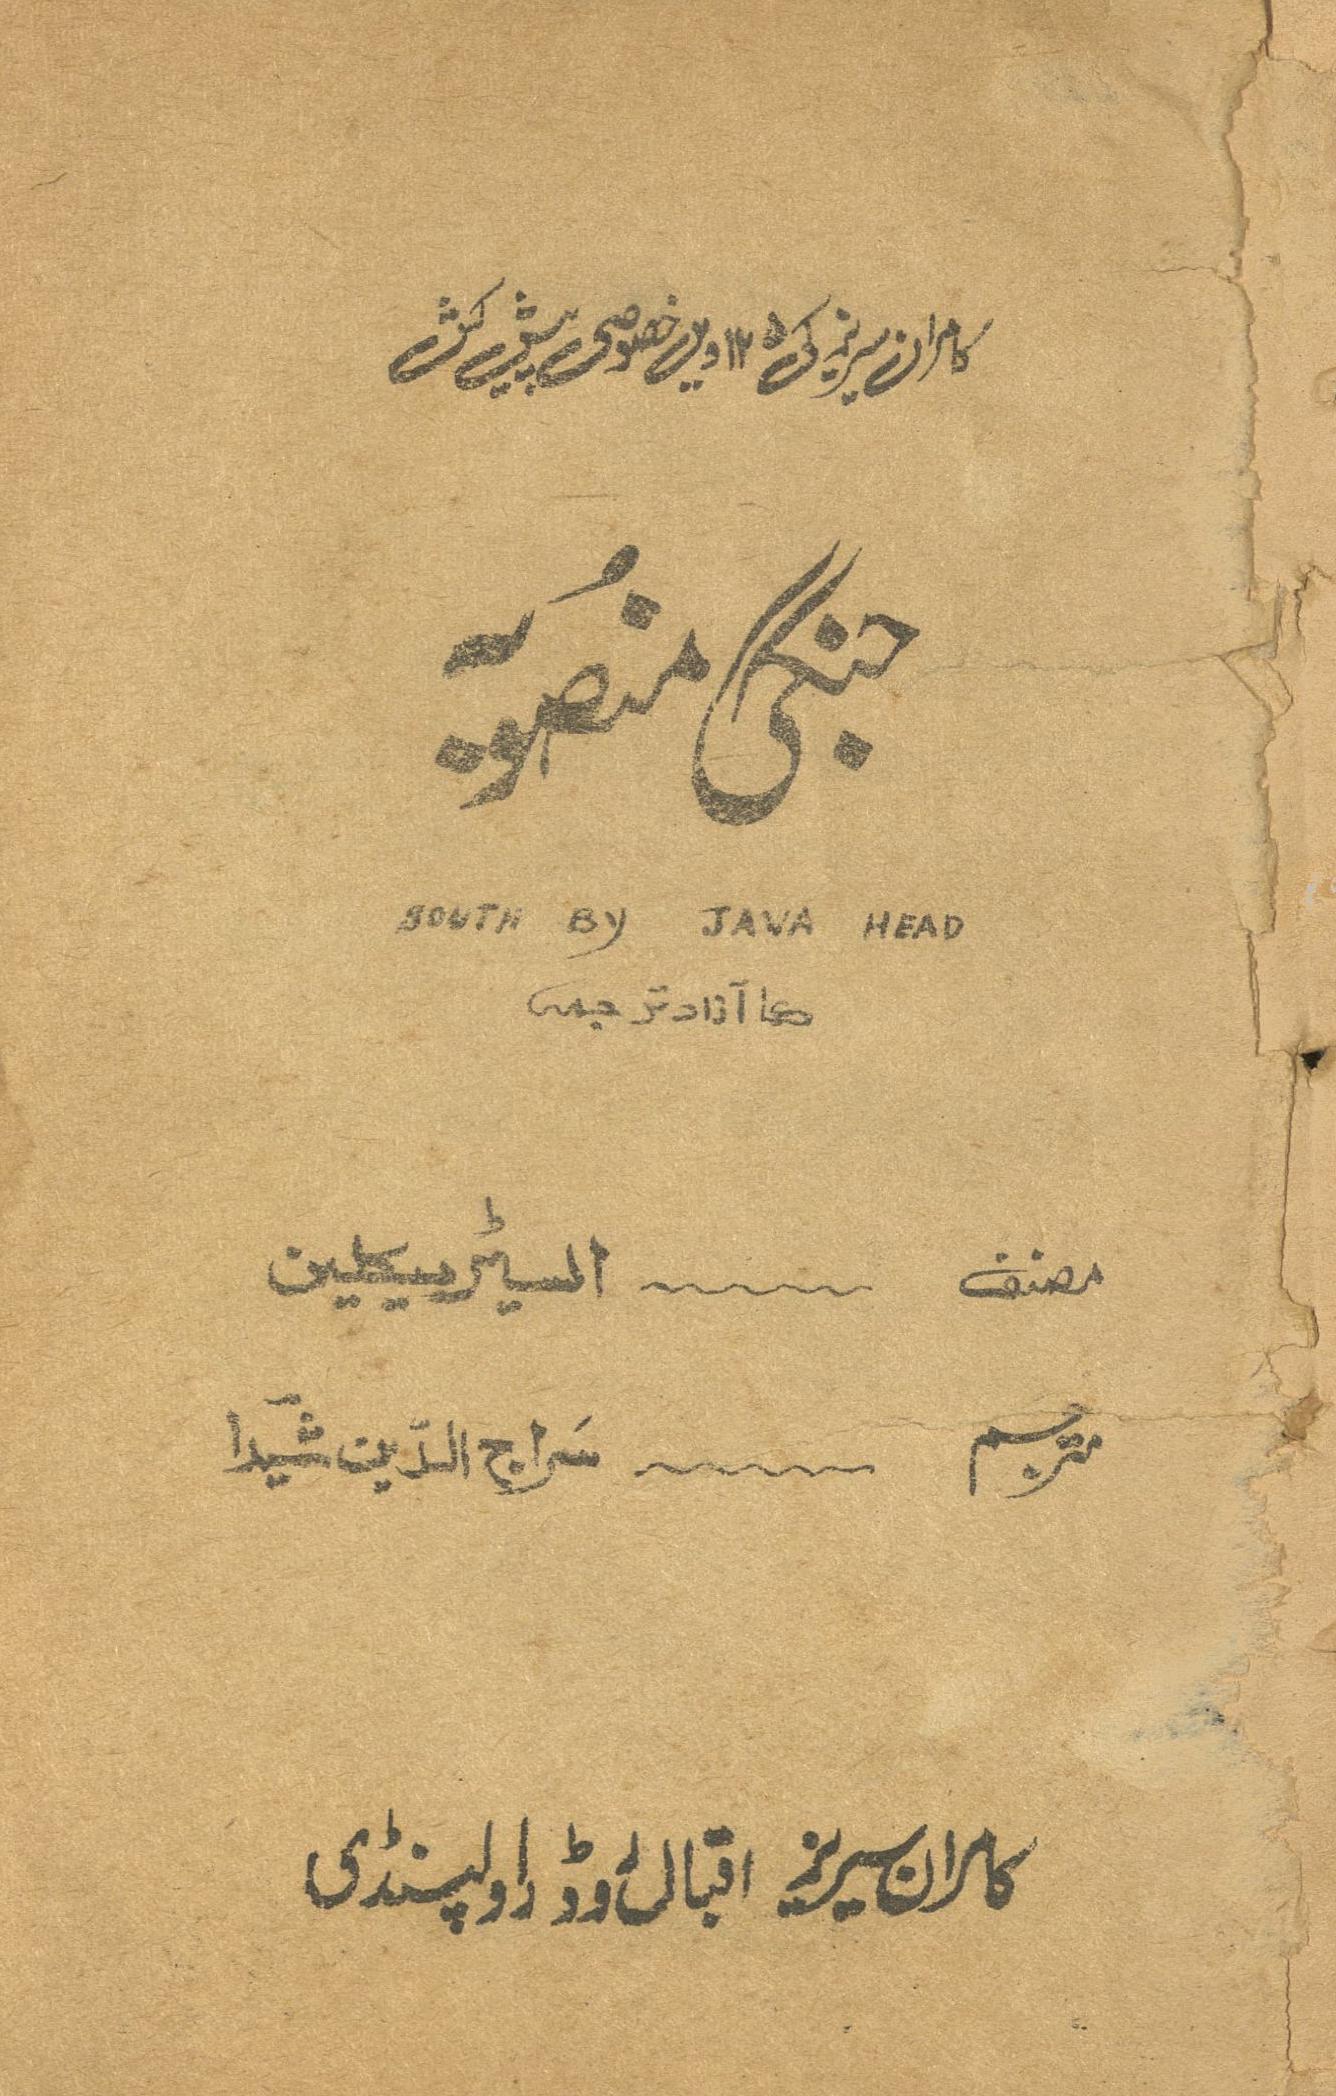 کامران سیریز کی ۱۲۵ ویں خصوصی پیش کش
جنگی منصُوبہ
SOUTH BY JAVA HEAD
کا آزاد ترجمہ
مصنف السیٹر میکلین
مترجم سَراج الدّین شیدا
کامران سیریز اقبال روڈ راولپنڈی